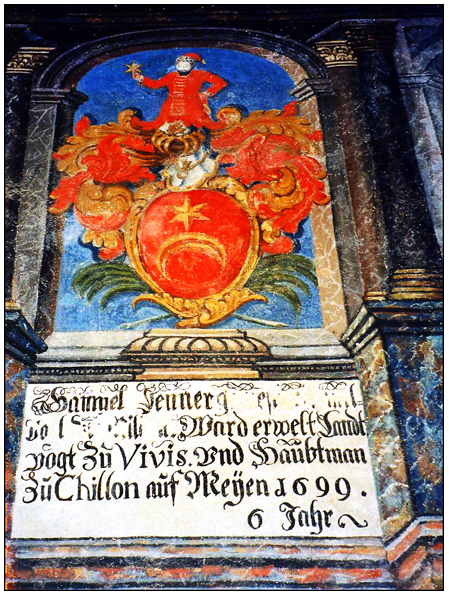 Samuel Jenner
Ward erwelt Landt
vogt Zu Vivis. vnd Haubtman
Zu Chillon auf Meÿen 1699.
6 Jahr